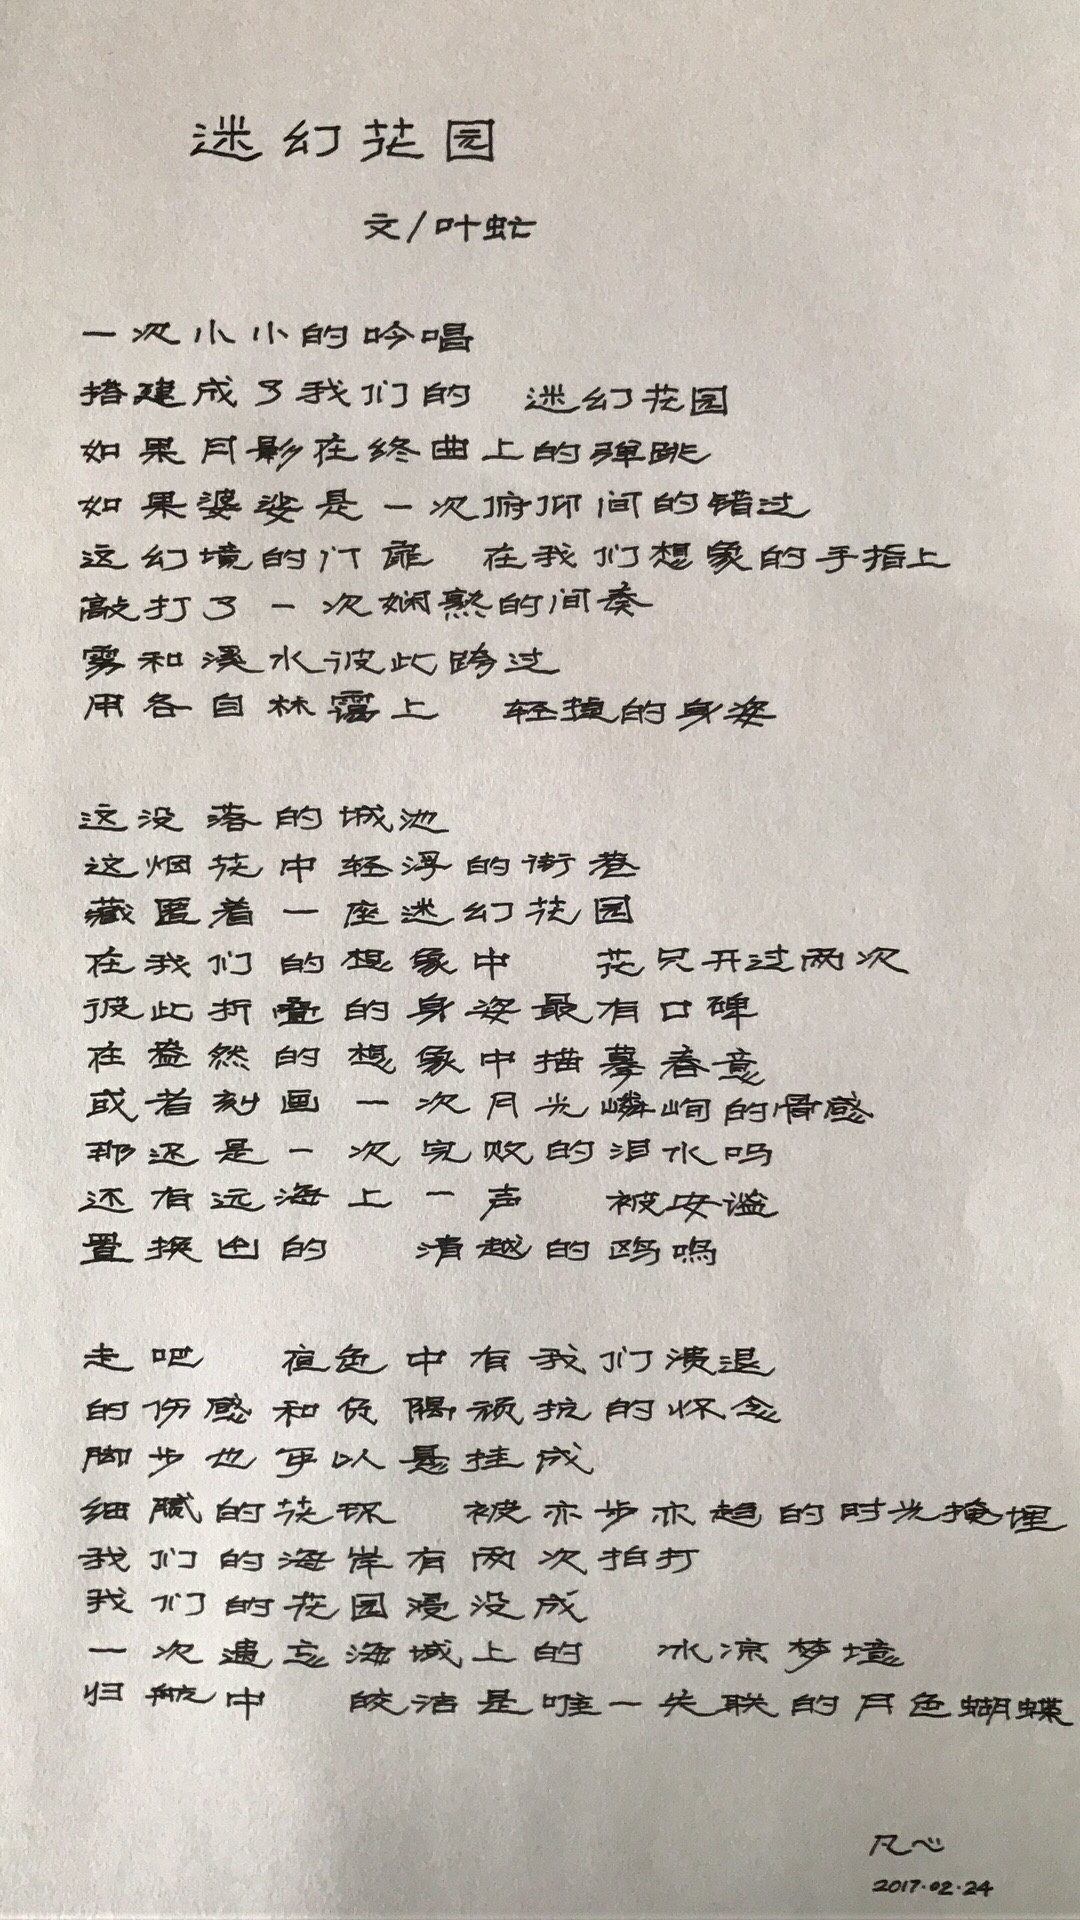 迷幻花园
文/叶虻
一次小小的吟唱
搭建成了我们的 迷幻花园
如果月影在终曲上的弹跳
如果婆娑是一次俯仰间的错过
这幻境的门扉 在我们想象的手指上
敲打了一次娴熟的间奏
雾和溪水彼此跨过
用各自林霭上 轻掉的身姿
这没落的城池
这烟花中轻浮的街巷
藏匿着一座迷幻花园
在我们的想象中 花只开过两次
彼此折叠的身姿最有口碑
在盎然的想象中描摹春意
或者刻画一次月光嶙峋的骨感
那还是一次完败的泪水吗
还有远海上一声 被安谧
置换出的 清越的鸥鸣
走吧 夜色中有我们溃退
的伤感和负隅顽抗的怀念
脚步也可以悬挂成
细腻的花环 被亦步亦趋的时光掩埋
我们的海岸有两次拍打
我们的花园漫没成
一次遗忘海域上的 冰凉梦境
归航中 皎洁是唯一失联的月色蝴蝶
凡心
2017.02.24